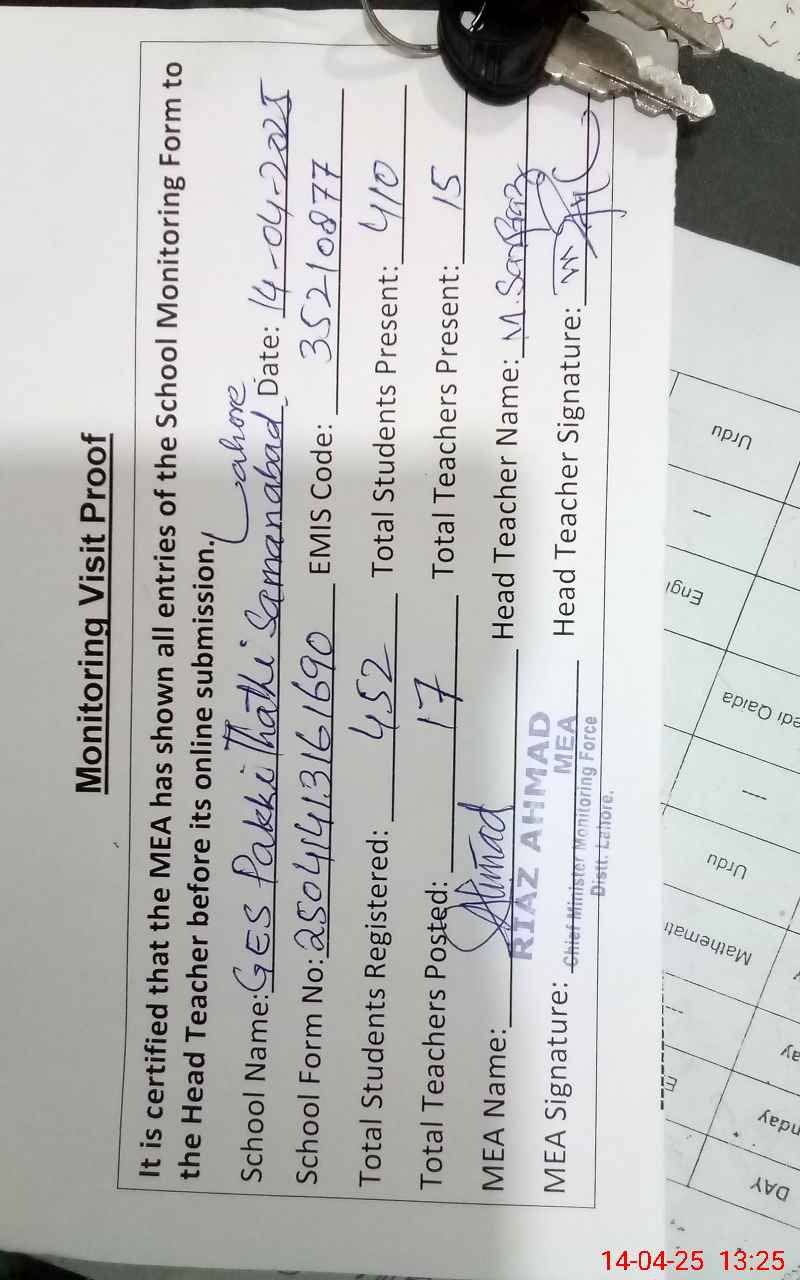 Monitoring Visit Proof
It is certified that the MEA has shown all entries of the School Monitoring Form to
the Head Teacher before its online submission.
School Name: GES Pakki Thathi Samanabad Lahore Date: 14-04-2025
School Form No: 25041413161690 EMIS Code: 35210877
Total Students Registered: 452 Total Students Present: 410
Total Teachers Posted: 17 Total Teachers Present: 15
MEA Name: Ahmad Head Teacher Name: M. Sarfraz
RIAZ AHMAD
MEA Signature: MEA Head Teacher Signature:
Chief Minister Monitoring Force
Distt. Lahore.
Urdu
—
Engl
edi Qaida
---
Urdu
Mathemati
---
E
ay
nday
DAY
14-04-25 13:25